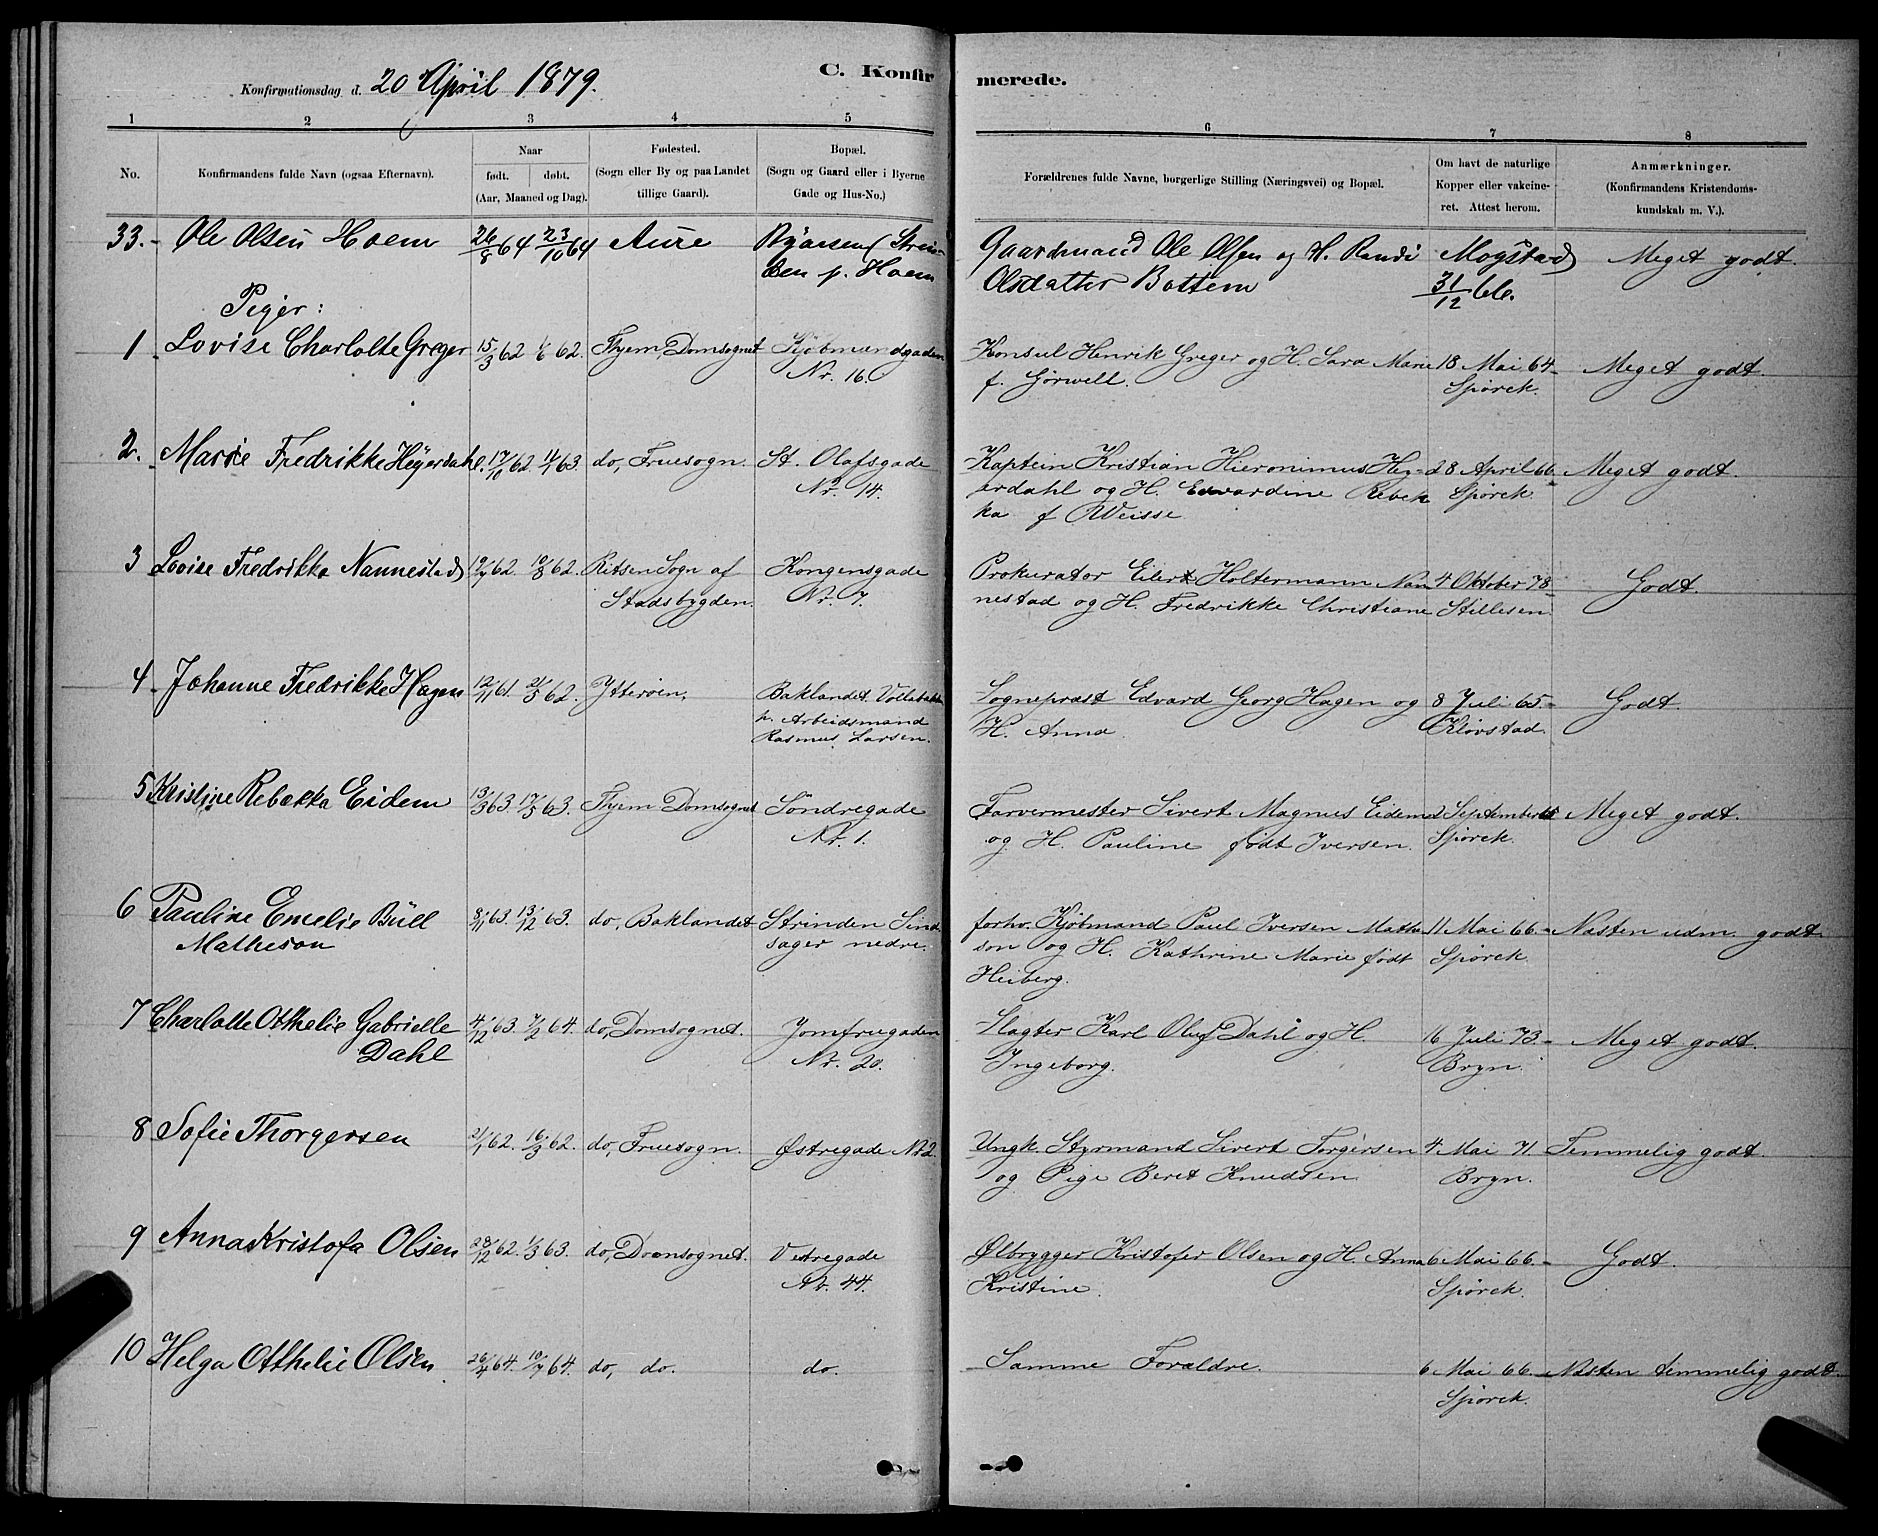 C. Konfirmerede.
Konfirmationsdag d. 20 April 1879.
1 2 3 4 5 6 7 8
No. Konfirmandens fulde Navn (ogsaa Efternavn). Naar født. døbt. (Aar, Maaned og Dag). Fødested. (Sogn eller By og paa Landet tillige Gaard). Bopæl. (Sogn og Gaard eller i Byerne Gade og Hus-No.) Forældrenes fulde Navne, borgerlige Stilling (Næringsvei) og Bopæl. Om havt de naturlige Kopper eller vakcineret. Attest herom. Anmærkninger. (Konfirmandens Kristendomskundskab m. V.).
33. Ole Olsen Hoem 26/8 64 23/10 64 Aure
p. Hoem
Gaardmand Ole Olsen og H. Randi Mogstad Meget godt.
Olsdatter Bottem 31/12 66.
Piger:
1 Lovise Charlotte Greger 15/3 62 1/6 62. Thjem, Domsognet Kjøbmandgaden
Nr. 16.
Konsul Henrik Greger og H. Sara Marie 18 Mai 64 Meget godt.
f. Görwell. Spörck.
2. Marie Fredrikke Heyerdahl. 17/10 62. 11/1 63. do, Fruesogn. St. Olafsgade
Nr. 14.
Kaptein Kristian Hieronimus Hey- 28 April 66 Meget godt.
erdahl og H. Edvardine Rebek Spörck.
ka f Weisse
3 Lovise Fredrikke Nannestad 19/7 62. 19/8 62. Ritsen Sogn af Kongensgade
Stadsbygden. Nr. 7.
Prokurator Eilert Holtermann Nan 4 Oktober 78 Godt.
nestad og H. Fredrikke Christiane Stillesen
4 Johanne Fredrikke Hagen 12/11 61. 21/5 62. Ytterøen. Baklandet.
p. Arbeidsmand
Rasmus Larsen.
Sogneprast Edvard Georg Hagen og 8 Juli 65. Godt.
H. Anna Klövstad.
5 Kristine Rebekka Eidem 13/3 63. 17/5 63. Thjem Domsognet Söndregade
Nr. 1.
Farvermester Sivert Magnus Eidem 2 September 65 Meget godt.
og H. Pauline født Iversen. Spörck.
6 Pauline Emelie Büll 8/11 63. 13/12 63. do, Baklandet Strinden Sind
Matheson sager nedre.
forhv. Kjöbmand Paul Iversen Mathe 11 Mai 66 Nasten udm. godt
son og H. Kathrine Marie født Spörck
Heiberg.
7 Charlotte Othelie Gabrielle 4/12 63. 7/2 64. do, Domsognet. Jomfrugaden
Dahl Nr. 20.
Slagter Karl Oluf Dahl og H. 16 Juli 73 Meget godt.
Ingeborg. Bryn.
8 Sofie Thorgersen 21/1 62. 16/3 62. do, Fruesogn. Østregade Nr 2.
Ungk. Styrmand Sivert Torgersen 4 Mai 71. Temmelig godt.
og Pige Beret Knudsen Bryn.
9 Anna Kristofa Olsen 28/12 62. 1/3 63. do, Domsognet. Vestregade
Nr. 44.
Ølbrygger Kristofer Olsen og H. Anna 6 Mai 66. Godt.
Kristine. Spörck.
10 Helga Othelie Olsen 26/4 64. 10/7 64. do, do. do.
Samme Foraldre. 6 Mai 66. Nasten temmelig godt.
Spörck.